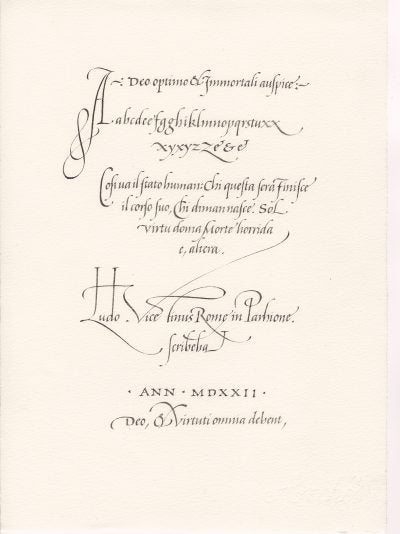 A ~: Deo optimo & Immortali auspice:~
A. abcdeefgghiklmnopqrstuxx
xyxyzZ&&e
Cosi va il stato human: Chi questa sera finisce
il corso suo, Chi diman nasce. Sol
virtu doma Morte horrida
e, altera.
Ludo. Vicentinus Rome in Parhione
scribeba
· ANN · MDXXII ·
Deo, & Virtuti omnia debent,